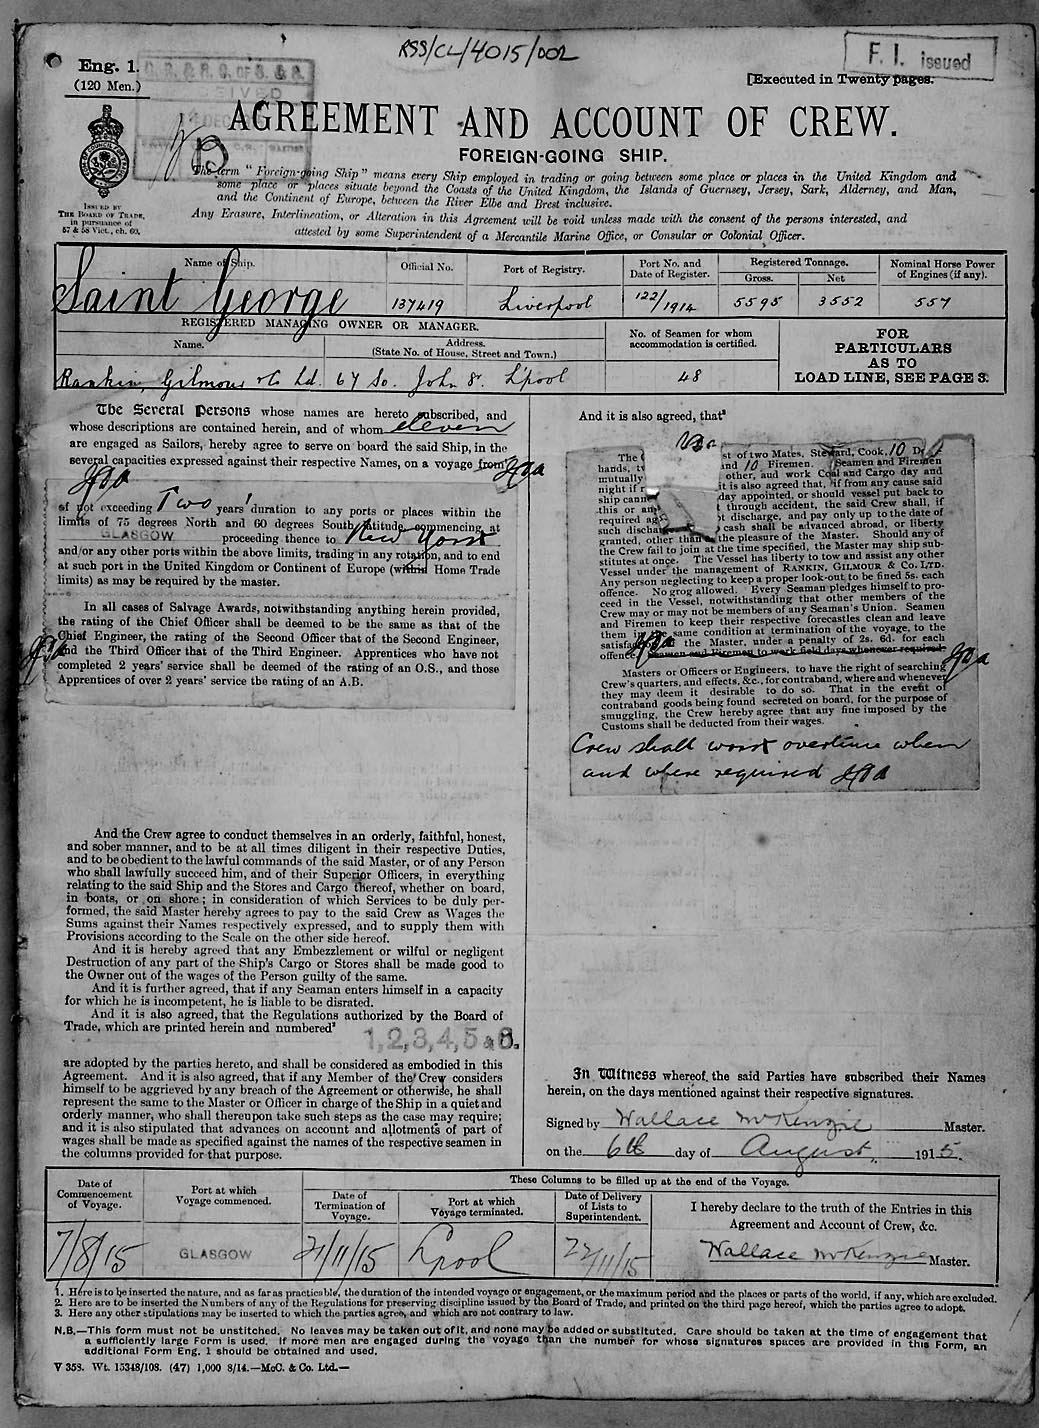 RSS/CL/4015/002
F. I. issued
Eng. 1.
(120 Men.)
[Executed in Twenty pages.
AGREEMENT AND ACCOUNT OF CREW.
FOREIGN-GOING SHIP.
The term "Foreign-going Ship" means every Ship employed in trading or going between some place or places in the United Kingdom and
some place or places situate beyond the Coasts of the United Kingdom, the Islands of Guernsey, Jersey, Sark, Alderney, and Man,
and the Continent of Europe, between the River Elbe and Brest inclusive.
Any Erasure, Interlineation, or Alteration in this Agreement will be void unless made with the consent of the persons interested, and
attested by some Superintendent of a Mercantile Marine Office, or Consular or Colonial Officer.
ISSUED BY
THE BOARD OF TRADE,
in pursuance of
57 & 58 Vict., ch. 60.
Name of Ship.
Official No.
Port of Registry.
Port No. and
Date of Register.
Registered Tonnage.
Gross.
Net
Nominal Horse Power
of Engines (if any).
Saint George
137419
Liverpool
122/1914
5595
3552
557
REGISTERED MANAGING OWNER OR MANAGER.
Name.
Address.
(State No. of House, Street and Town.)
No. of Seamen for whom
accommodation is certified.
FOR
PARTICULARS
AS TO
LOAD LINE, SEE PAGE 3.
Rankin, Gilmour & Co Ld.
67 So. John St. L'pool
48
The Several Persons whose names are hereto subscribed, and
whose descriptions are contained herein, and of whom eleven
are engaged as Sailors, hereby agree to serve on board the said Ship, in the
several capacities expressed against their respective Names, on a voyage from
of not exceeding Two years' duration to any ports or places within the
limits of 75 degrees North and 60 degrees South latitude, commencing at
GLASGOW proceeding thence to New York
and/or any other ports within the above limits, trading in any rotation, and to end
at such port in the United Kingdom or Continent of Europe (within Home Trade
limits) as may be required by the master.
In all cases of Salvage Awards, notwithstanding anything herein provided,
the rating of the Chief Officer shall be deemed to be the same as that of the
Chief Engineer, the rating of the Second Officer that of the Second Engineer,
and the Third Officer that of the Third Engineer. Apprentices who have not
completed 2 years' service shall be deemed of the rating of an O.S., and those
Apprentices of over 2 years' service the rating of an A.B.
And the Crew agree to conduct themselves in an orderly, faithful, honest,
and sober manner, and to be at all times diligent in their respective Duties,
and to be obedient to the lawful commands of the said Master, or of any Person
who shall lawfully succeed him, and of their Superior Officers, in everything
relating to the said Ship and the Stores and Cargo thereof, whether on board,
in boats, or on shore; in consideration of which Services to be duly per-
formed, the said Master hereby agrees to pay to the said Crew as Wages the
Sums against their Names respectively expressed, and to supply them with
Provisions according to the Scale on the other side hereof.
And it is hereby agreed that any Embezzlement or wilful or negligent
Destruction of any part of the Ship's Cargo or Stores shall be made good to
the Owner out of the wages of the Person guilty of the same.
And it is further agreed, that if any Seaman enters himself in a capacity
for which he is incompetent, he is liable to be disrated.
And it is also agreed, that the Regulations authorized by the Board of
Trade, which are printed herein and numbered²
1, 2, 3, 4, 5 & 6.
are adopted by the parties hereto, and shall be considered as embodied in this
Agreement. And it is also agreed, that if any Member of the Crew considers
himself to be aggrieved by any breach of the Agreement or otherwise, he shall
represent the same to the Master or Officer in charge of the Ship in a quiet and
orderly manner, who shall thereupon take such steps as the case may require;
and it is also stipulated that advances on account and allotments of part of
wages shall be made as specified against the names of the respective seamen in
the columns provided for that purpose.
And it is also agreed, that³
The st of two Mates, Steward, Cook, 10
hands, and 10 Firemen. Seamen and Firemen
mutually other, and work Coal and Cargo day and
night if it is also agreed that, if from any cause said
ship cann day appointed, or should vessel put back to
this or any through accident, the said Crew shall, if
required discharge, and pay only up to the date of
such discha cash shall be advanced abroad, or liberty
granted, other than the pleasure of the Master. Should any of
the Crew fail to join at the time specified, the Master may ship sub-
stitutes at once. The Vessel has liberty to tow and assist any other
Vessel under the management of RANKIN, GILMOUR & Co. LTD.
Any person neglecting to keep a proper look-out to be fined 5s. each
offence. No grog allowed. Every Seaman pledges himself to pro-
ceed in the Vessel, notwithstanding that other members of the
Crew may or may not be members of any Seaman's Union. Seamen
and Firemen to keep their respective forecastles clean and leave
them in same condition at termination of the voyage, to the
satisfaction the Master, under a penalty of 2s. 6d. for each
offence. Seamen and Firemen to work field days whenever required.
Masters or Officers or Engineers, to have the right of searching
Crew's quarters, and effects, &c., for contraband, where and whenever
they may deem it desirable to do so. That in the event of
contraband goods being found secreted on board, for the purpose of
smuggling, the Crew hereby agree that any fine imposed by the
Customs shall be deducted from their wages.
Crew shall work overtime when
and where required
In Witness whereof, the said Parties have subscribed their Names
herein, on the days mentioned against their respective signatures.
Signed by Wallace McKenzie Master.
on the 6th day of August, 1915.
Date of
Commencement
of Voyage.
Port at which
Voyage commenced.
These Columns to be filled up at the end of the Voyage.
Date of
Termination of
Voyage.
Port at which
Voyage terminated.
Date of Delivery
of Lists to
Superintendent.
I hereby declare to the truth of the Entries in this
Agreement and Account of Crew, &c.
7/8/15
GLASGOW
21/11/15
Lpool
22/11/15
Wallace McKenzie Master.
1. Here is to be inserted the nature, and as far as practicable, the duration of the intended voyage or engagement, or the maximum period and the places or parts of the world, if any, which are excluded.
2. Here are to be inserted the Numbers of any of the Regulations for preserving discipline issued by the Board of Trade, and printed on the third page hereof, which the parties agree to adopt.
3. Here any other stipulations may be inserted to which the parties agree, and which are not contrary to law.
N.B.—This form must not be unstitched. No leaves may be taken out of it, and none may be added or substituted. Care should be taken at the time of engagement that
a sufficiently large Form is used. If more men are engaged during the voyage than the number for whose signatures spaces are provided in this Form, an
additional Form Eng. 1 should be obtained and used.
V 353. Wt. 15348/108. (47) 1,000 8/14.—McC. & Co. Ltd.—